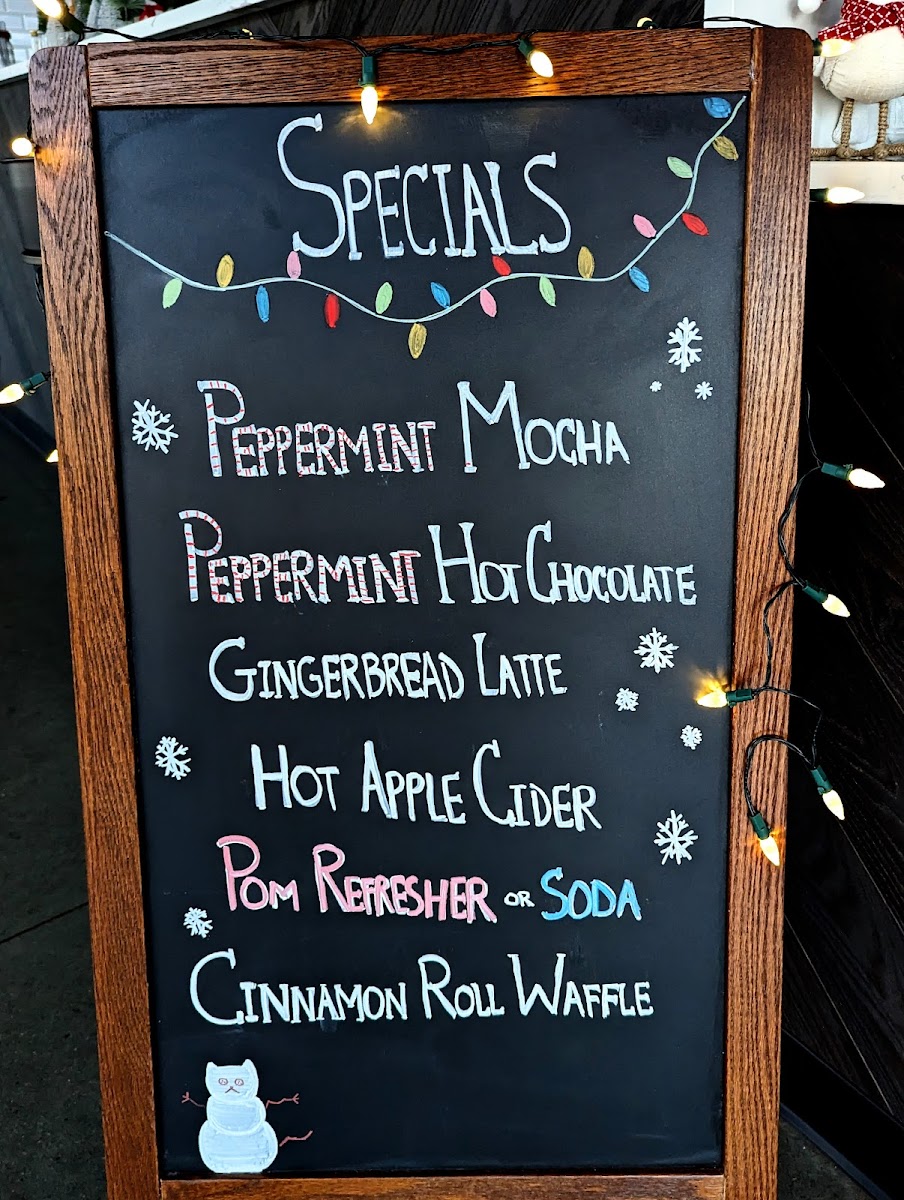 SPECIALS
PEPPERMINT MOCHA
PEPPERMINT HOT CHOCOLATE
GINGERBREAD LATTE
HOT APPLE CIDER
POM REFRESHER OR SODA
CINNAMON ROLL WAFFLE